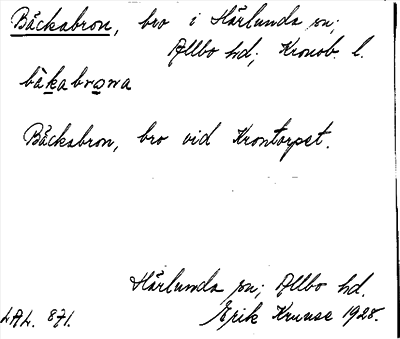 Bäckabron, bro i Härlunda sn;
Allbo hd; Kronob. l.
bàkabrωna
Bäckabron, bro vid Krontorpet.
Härlunda sn; Allbo hd.
LAL. 871. Erik Kruuse 1928.